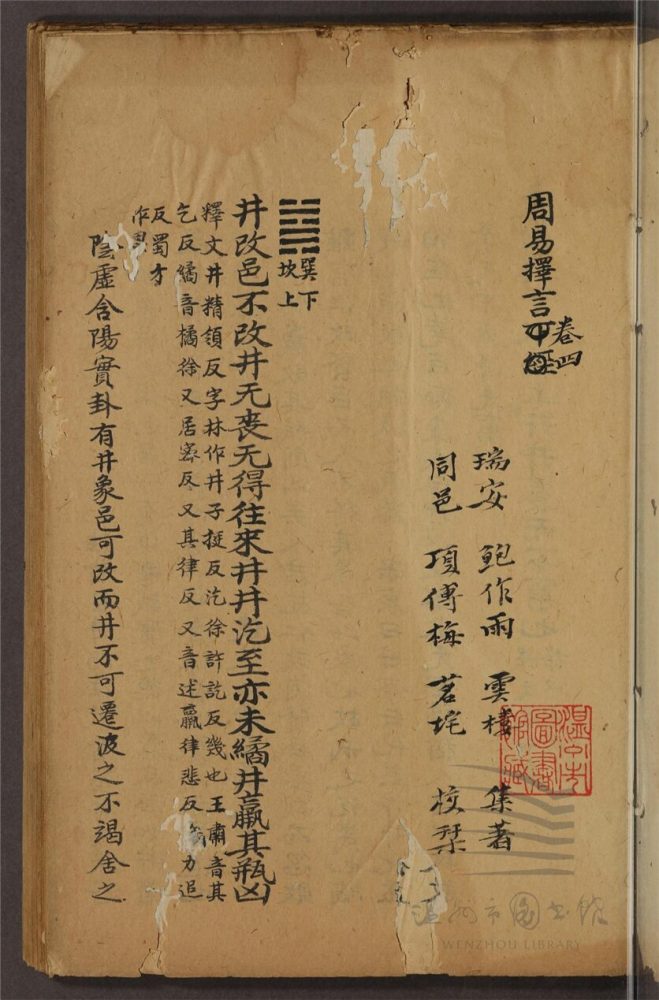 周易擇言
卷四
瑞安 鮑作雨 雲樓 集著
同邑 項傅梅 茗垞 校栞
巽下
坎上
井改邑不改井无喪无得往來井井汔至亦未繘井羸其瓶凶
釋文井精領反字林作井子挺反汔徐許訖反幾也王肅音其
乞反繘音橘徐又居密反又其律反又音述羸律悲反 力追
反蜀才作
陰虛含陽實卦有井象邑可改而井不可遷汲之不竭舍之
溫州市圖書館藏
溫州市圖書館
WENZHOU LIBRARY